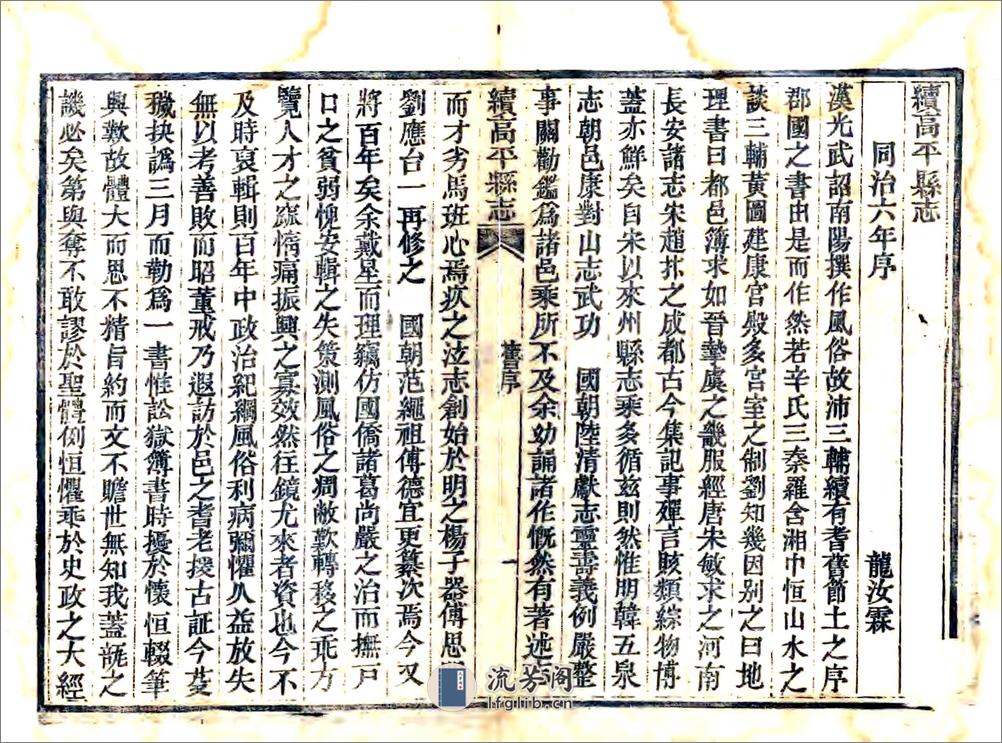 續高平縣志
同治六年序 龍汝霖
漢光武詔南陽撰作風俗故沛三輔續有耆舊節士之序
郡國之書由是而作然若辛氏三秦羅含湘中恒山水之
談三輔黃圖建康宮殿多宮室之制劉知幾因別之曰地
理書曰都邑簿求如晉摯虞之畿服經唐朱敏求之河南
長安諸志宋趙抃之成都古今集記事殫言賅類綜物博
蓋亦鮮矣自宋以來州縣志乘多循玆則然惟明韓五泉
志朝邑康對山志武功 國朝陸清獻志靈壽義例嚴整
事關勸鑑爲諸邑乘所不及余幼誦諸作慨然有著述
續高平縣志 舊序 一
而才劣馬班心焉疚之泫志創始於明之楊子器傅思
劉應台一再修之 國朝范繩祖傅德宜更纂次焉今又
將百年矣余戴星而理竊仿國僑諸葛尚嚴之治而撫戸
口之貧弱愧安輯之失策測風俗之凋敝歎轉移之乖方
覽人才之窳惰痛振興之寡效然往鏡尤來者資也今不
及時裒輯則百年中政治紀綱風俗利病彌懼久益放失
無以考善敗而昭董戒乃遐訪於邑之耆老援古証今芟
穢抉譌三月而勒爲一書惟訟獄簿書時擾於懷恒輟筆
興歎故體大而思不精旨約而文不贍世無知我蓋毓之
譏必矣第與奪不敢謬於聖體例恒懼乖於史政之大經
流芳閣
lfglib.cn